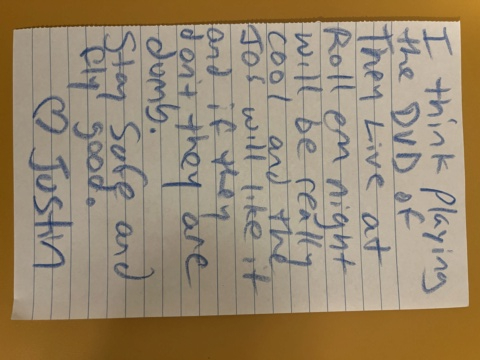 I think playing
the DVD of
They Live at
Roll em night
will be really
cool and the
JOS will like it
and if they
don't they are
dumb.
Stay safe and
fly good.
♡ Justin